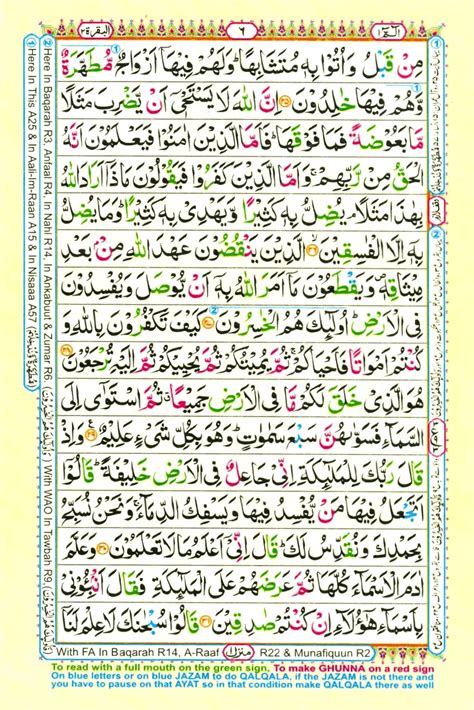 الٓمّٓ ١
٦
البقرة ٢
مِنْ قَبْلُ وَاُتُوْا بِهٖ مُتَشَابِهًا وَلَهُمْ فِيْهَآ اَزْوَاجٌ مُّطَهَّرَةٌ
وَّهُمْ فِيْهَا خٰلِدُوْنَ ۝٢٥ اِنَّ اللّٰهَ لَا يَسْتَحْيٖٓ اَنْ يَّضْرِبَ مَثَلًا
مَّا بَعُوْضَةً فَمَا فَوْقَهَا فَاَمَّا الَّذِيْنَ اٰمَنُوْا فَيَعْلَمُوْنَ اَنَّهُ
الْحَقُّ مِنْ رَّبِّهِمْ وَاَمَّا الَّذِيْنَ كَفَرُوْا فَيَقُوْلُوْنَ مَاذَآ اَرَادَ اللّٰهُ
بِهٰذَا مَثَلًا يُضِلُّ بِهٖ كَثِيْرًا وَّيَهْدِيْ بِهٖ كَثِيْرًا وَمَا يُضِلُّ
بِهٖٓ اِلَّا الْفٰسِقِيْنَ ۝٢٦ الَّذِيْنَ يَنْقُضُوْنَ عَهْدَ اللّٰهِ مِنْۢ بَعْدِ
مِيْثَاقِهٖ وَيَقْطَعُوْنَ مَآ اَمَرَ اللّٰهُ بِهٖٓ اَنْ يُّوْصَلَ وَيُفْسِدُوْنَ
فِي الْاَرْضِ اُولٰٓئِكَ هُمُ الْخٰسِرُوْنَ ۝٢٧ كَيْفَ تَكْفُرُوْنَ بِاللّٰهِ وَ
كُنْتُمْ اَمْوَاتًا فَاَحْيَاكُمْ ثُمَّ يُمِيْتُكُمْ ثُمَّ يُحْيِيْكُمْ ثُمَّ اِلَيْهِ تُرْجَعُوْنَ ۝٢٨
هُوَ الَّذِيْ خَلَقَ لَكُمْ مَّا فِي الْاَرْضِ جَمِيْعًا ثُمَّ اسْتَوٰٓى اِلَى
السَّمَآءِ فَسَوّٰىهُنَّ سَبْعَ سَمٰوٰتٍ وَهُوَ بِكُلِّ شَيْءٍ عَلِيْمٌ ۝٢٩ وَاِذْ
قَالَ رَبُّكَ لِلْمَلٰٓئِكَةِ اِنِّيْ جَاعِلٌ فِي الْاَرْضِ خَلِيْفَةً قَالُوْٓا
اَتَجْعَلُ فِيْهَا مَنْ يُّفْسِدُ فِيْهَا وَيَسْفِكُ الدِّمَآءَ وَنَحْنُ نُسَبِّحُ
بِحَمْدِكَ وَنُقَدِّسُ لَكَ قَالَ اِنِّيْٓ اَعْلَمُ مَا لَا تَعْلَمُوْنَ ۝٣٠ وَعَلَّمَ
اٰدَمَ الْاَسْمَآءَ كُلَّهَا ثُمَّ عَرَضَهُمْ عَلَى الْمَلٰٓئِكَةِ فَقَالَ اَنْۢبِـُٔوْنِيْ
بِاَسْمَآءِ هٰٓؤُلَآءِ اِنْ كُنْتُمْ صٰدِقِيْنَ ۝٣١ قَالُوْا سُبْحٰنَكَ لَا عِلْمَ لَنَآ
② Here In Baqarah R3, Anfaal R4, In Nahl R14, In Ankabuut & Zumar R6, With WAO In Tawbah R9,
① Here In This A25 & In Aali-Im-Raan A15 & In Nisaaa A57
With FA In Baqarah R14, A-Raaf منزل ١ R22 & Munafiquun R2
To read with a full mouth on the green sign, To make GHUNNA on a red sign
On blue letters or on blue JAZAM to do QALQALA, if the JAZAM is not there and
you have to pause on that AYAT so in that condition make QALQALA there as well